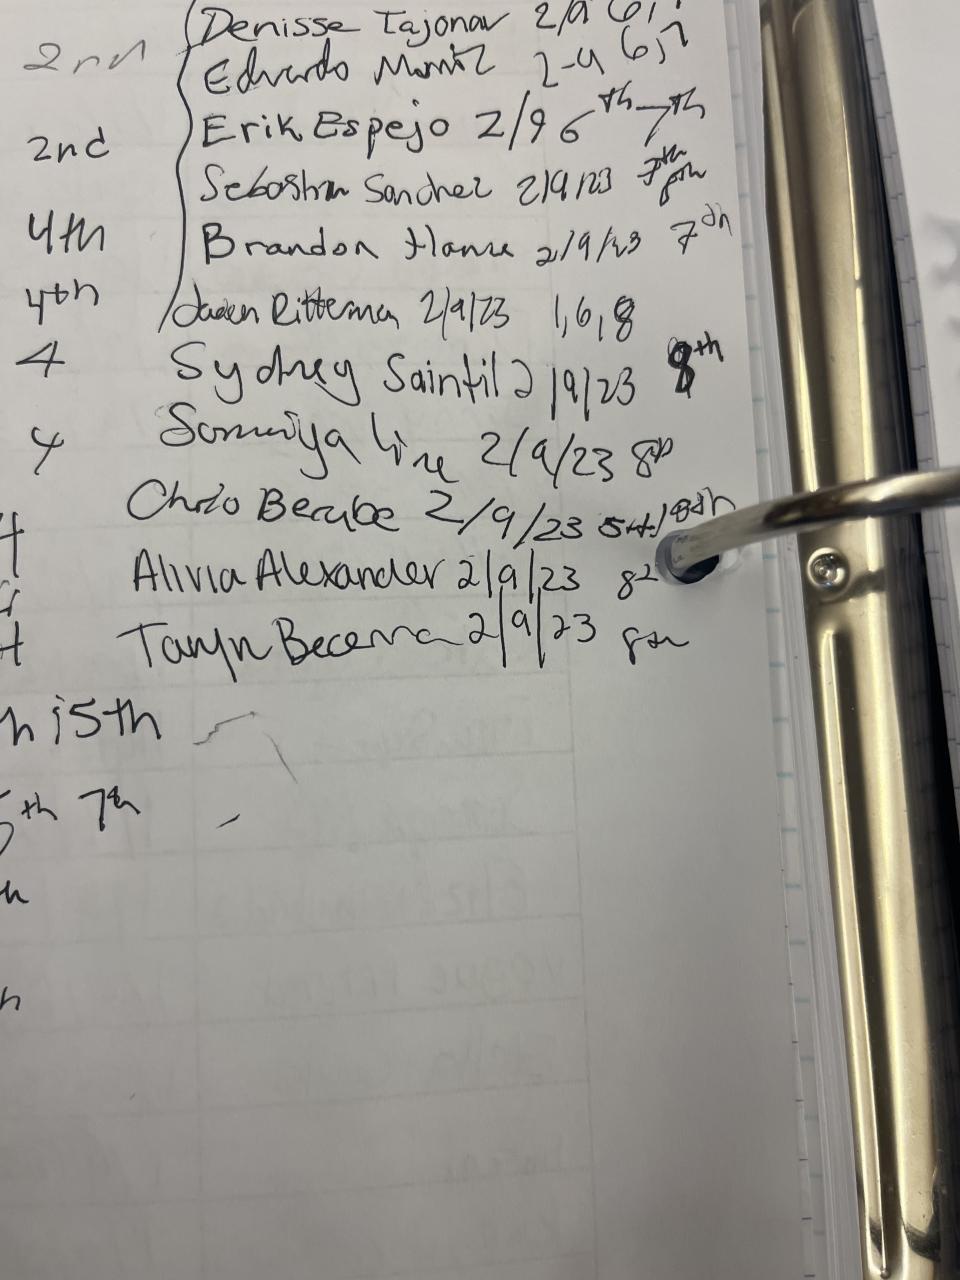 2nd Denisse Tajonar 2/9 6,7
Eduardo Muniz 2-9 6,7
2nd Erik Espejo 2/9 6th-7th
Sebastian Sanchez 2/9/23 7th 8th
4th Brandon 2/9/23 7th
4th Jaden Ritteman 2/9/23 1,6,8
4 Sydney Saintil 2/9/23 8th
4 2/9/23 8th
Berube 2/9/23 5th/8th
Alivia Alexander 2/9/23 8
Taryn Becerra 2/9/23 8th
h i5th
5th 7th
h
h